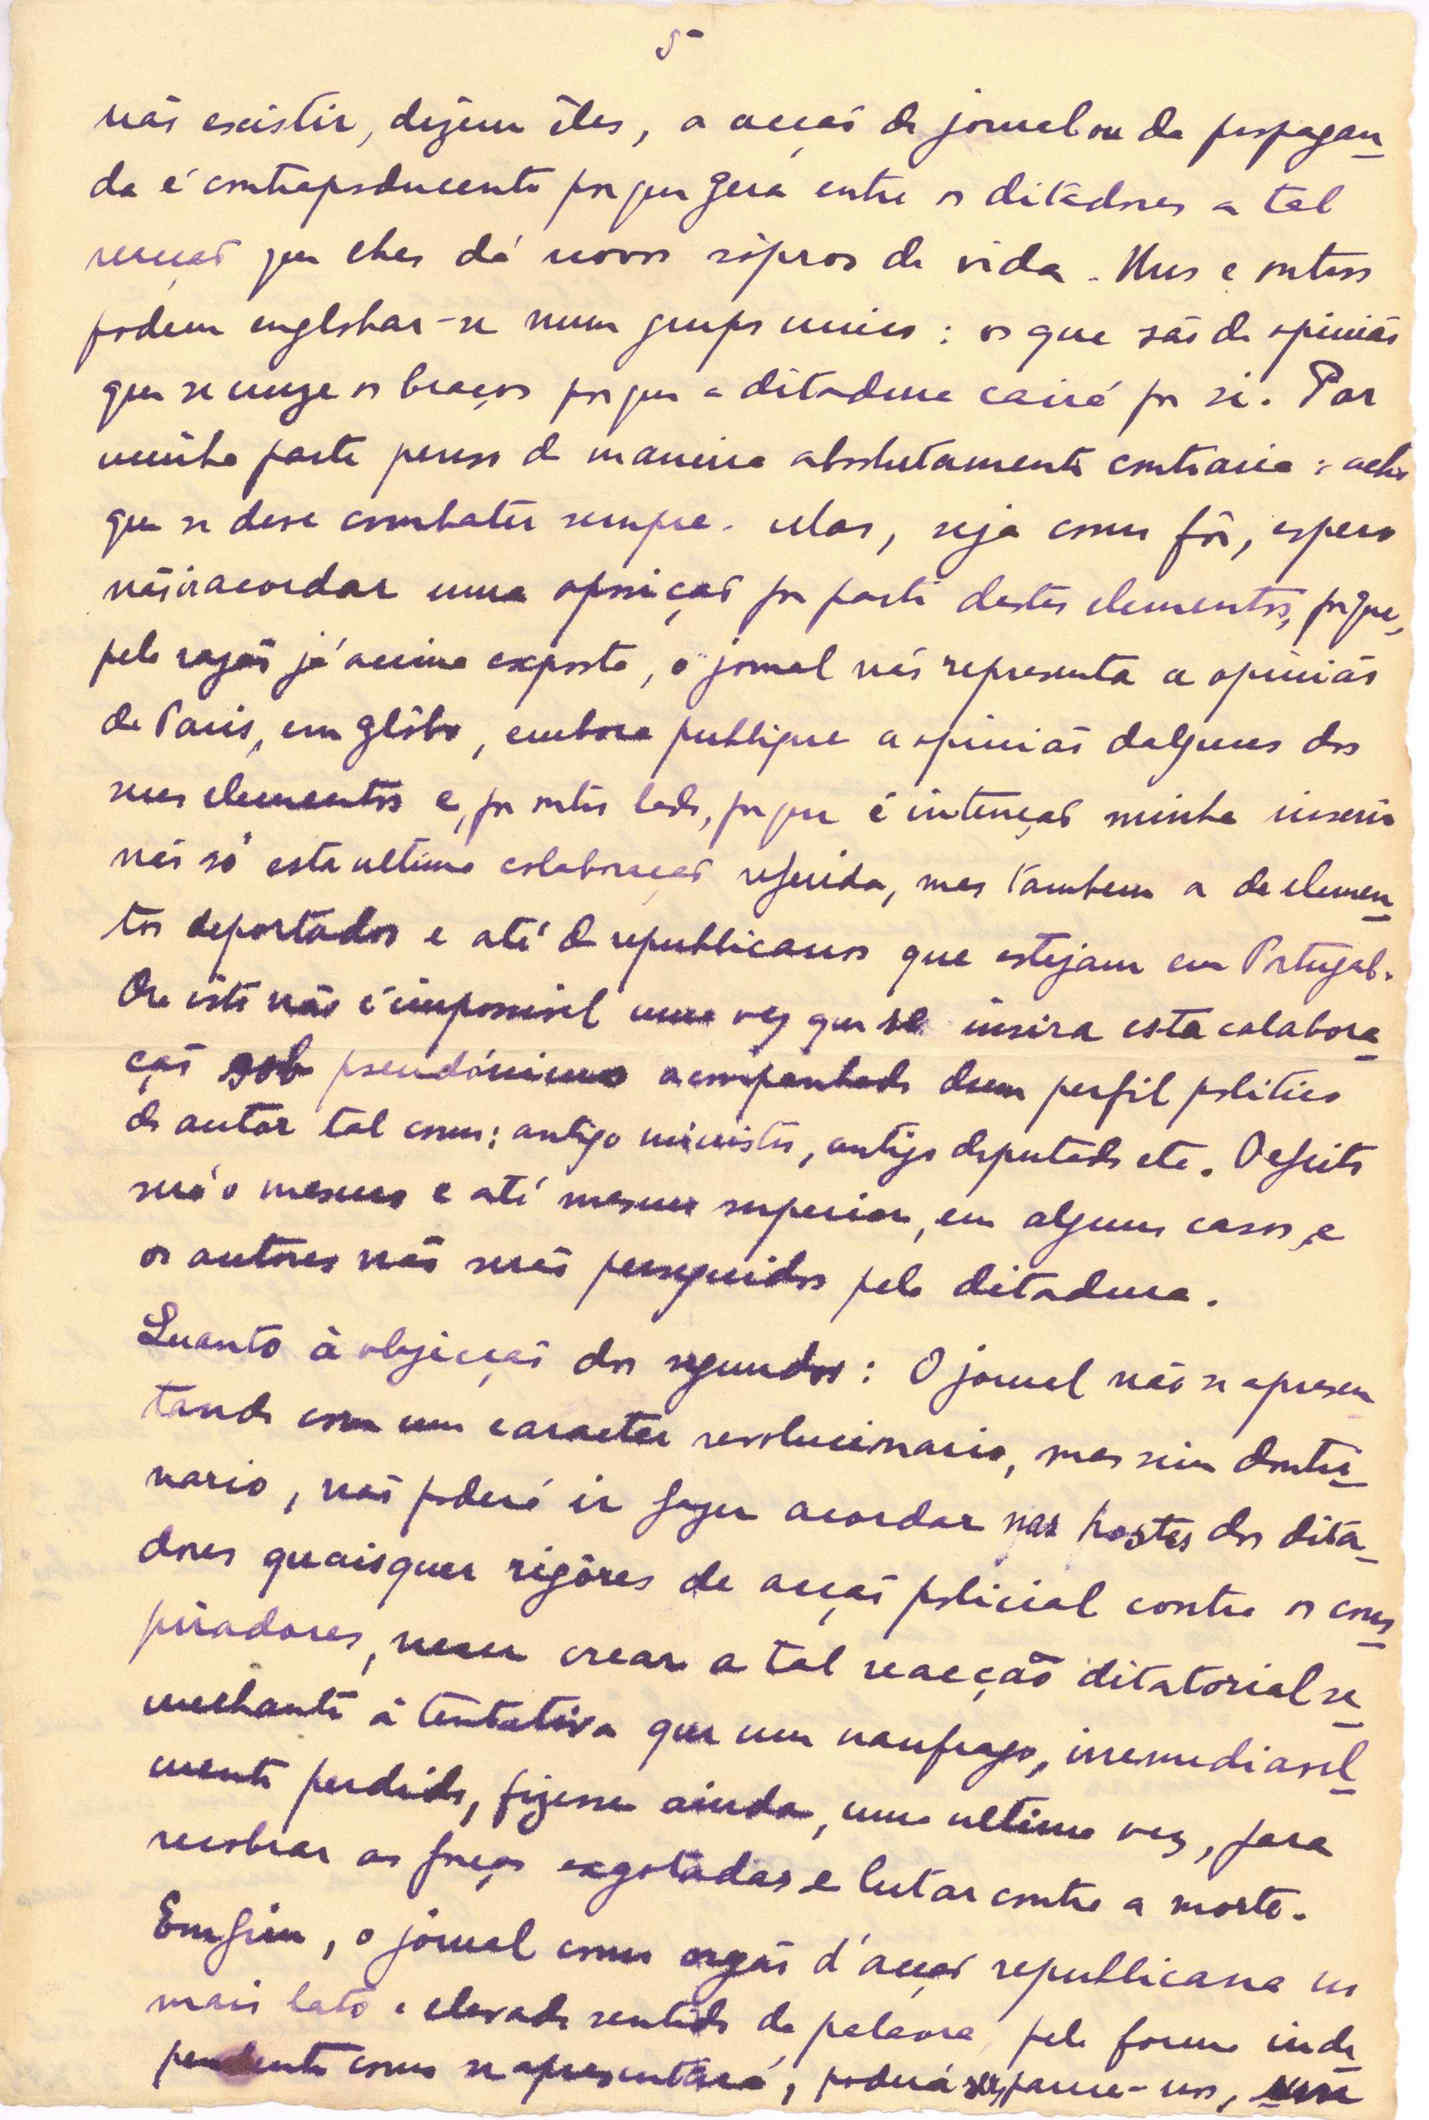 5
não existir, dizem êles, a acção do jornal ou da propagan-
da é contraproducente porque gera entre os ditadores a tal
reacção que lhes dá novos sôpros de vida. Uns e outros
podem englobar-se num grupo unico: os que são de opinião
que se cruze os braços porque a ditadura cairá por si. Por
minha parte penso de maneira absolutamente contraria: acho
que se deve combater sempre. Mas, seja como fôr, espero
não ir acordar uma oposição por parte destes elementos, porque,
pela razão já acima exposta, o jornal não representa a opinião
de Paris, em glôbo, embora publique a opinião dalguns dos
seus elementos e, por outro lado, porque é intenção minha inserir
não só esta ultima colaboração referida, mas tambem a de elemen-
tos deportados e até de republicanos que estejam em Portugal.
Ora isto não é impossivel uma vez que se insira esta colabora-
ção sob pseudónimo acompanhado dum perfil politico
do autor tal como: antigo ministro, antigo deputado etc. O efeito
será o mesmo e até mesmo superior, em alguns casos, e
os autores não serão perseguidos pela ditadura.
Quanto à objecção dos segundos: O jornal não se apresen-
tando com um caracter revolucionario, mas sim doutri-
nario, não poderá ir fazer acordar nas hostes dos dita-
dores quaisquer rigôres de acção policial contra os cons-
piradores, nem crear a tal reacção ditatorial se-
melhante à tentativa que um naufrago, irremediavel-
mente perdido, fizesse ainda, uma ultima vez, para
recobrar as forças exgotadas e lutar contra a morte.
Emfim, o jornal como orgão d'acção republicana no
mais lato e elevado sentido da palavra, pela forma inde-
pendente como se apresentará, poderá ser, parece-nos,